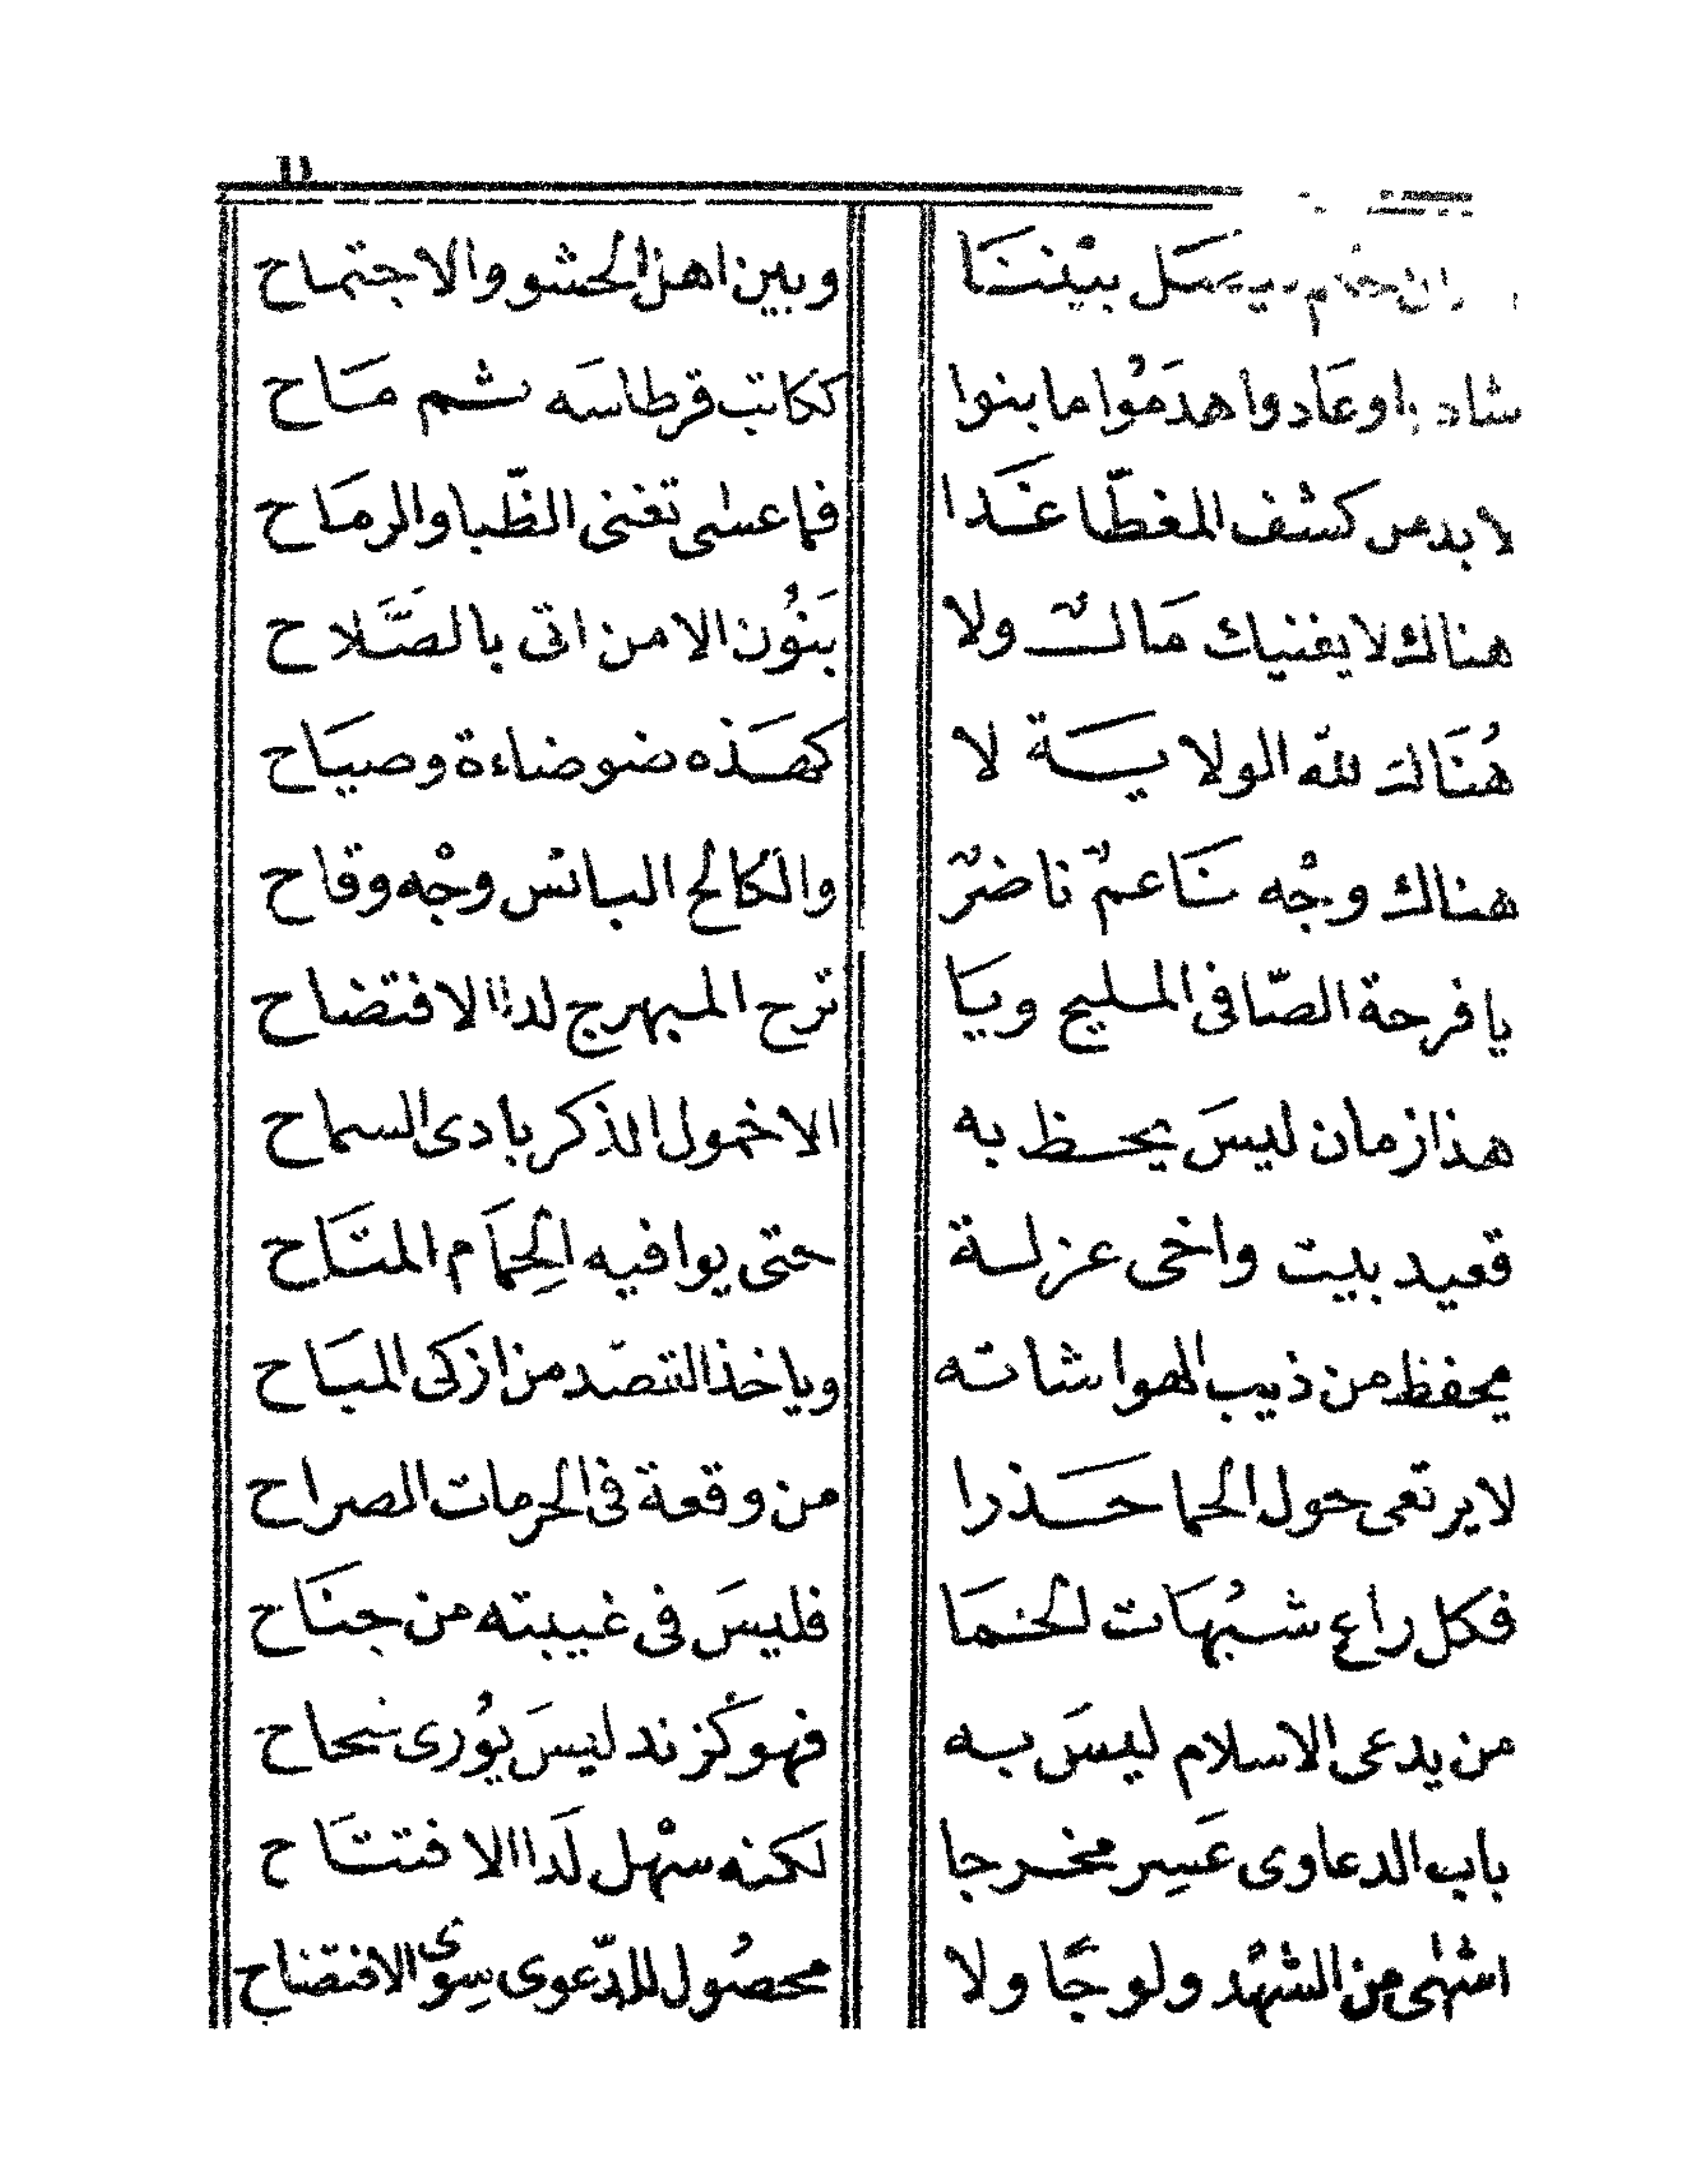 بيْننَا وبين اهل الحشو والاجتماح
اوعَادوا هدمُوا ما بنوا ككاتب قرطاسَه ثم مَاح
لا بد من كشف المغطّا غَدا فما عسى تغنى الظّبا والرمَاح
هنالك لا يغنيك مَالٌ ولا بَنُون الا من اتى بالصَّلاح
هُنَالك للّه الولايَة لا كهَذه ضوضاءة وصيَاح
هناك وجْه نَاعمٌ ناضرٌ والكالح البائس وجْه وقاح
يا فرحة الصّافى المليح ويَا ترح المبهرج لدا الافتضاح
هذا زمان ليسَ يحظ به الا خمول الذكر بادى السماح
قعيد بيت واخى عزلة حتى يوافيه الحِمَام المتَاح
يحفظ من ذيب الهوا شاته وياخذ التصّد من ازكى المبَاح
لا يرتعى حول الحما حَذرا من وقعة فى الحرمات الصراح
فكل راع شبُهَات الحمَا فليسَ فى غيبته من جنَاح
من يدعى الاسلام ليسَ به فهو كزند ليسَ يُورى نحاح
باب الدعاوى عَسِر مخرجا لكنه سهْل لَدا الافتتَاح
اشهى من الشهْد ولوجًا ولا محصُول للدّعوى سِوى الافتضاح